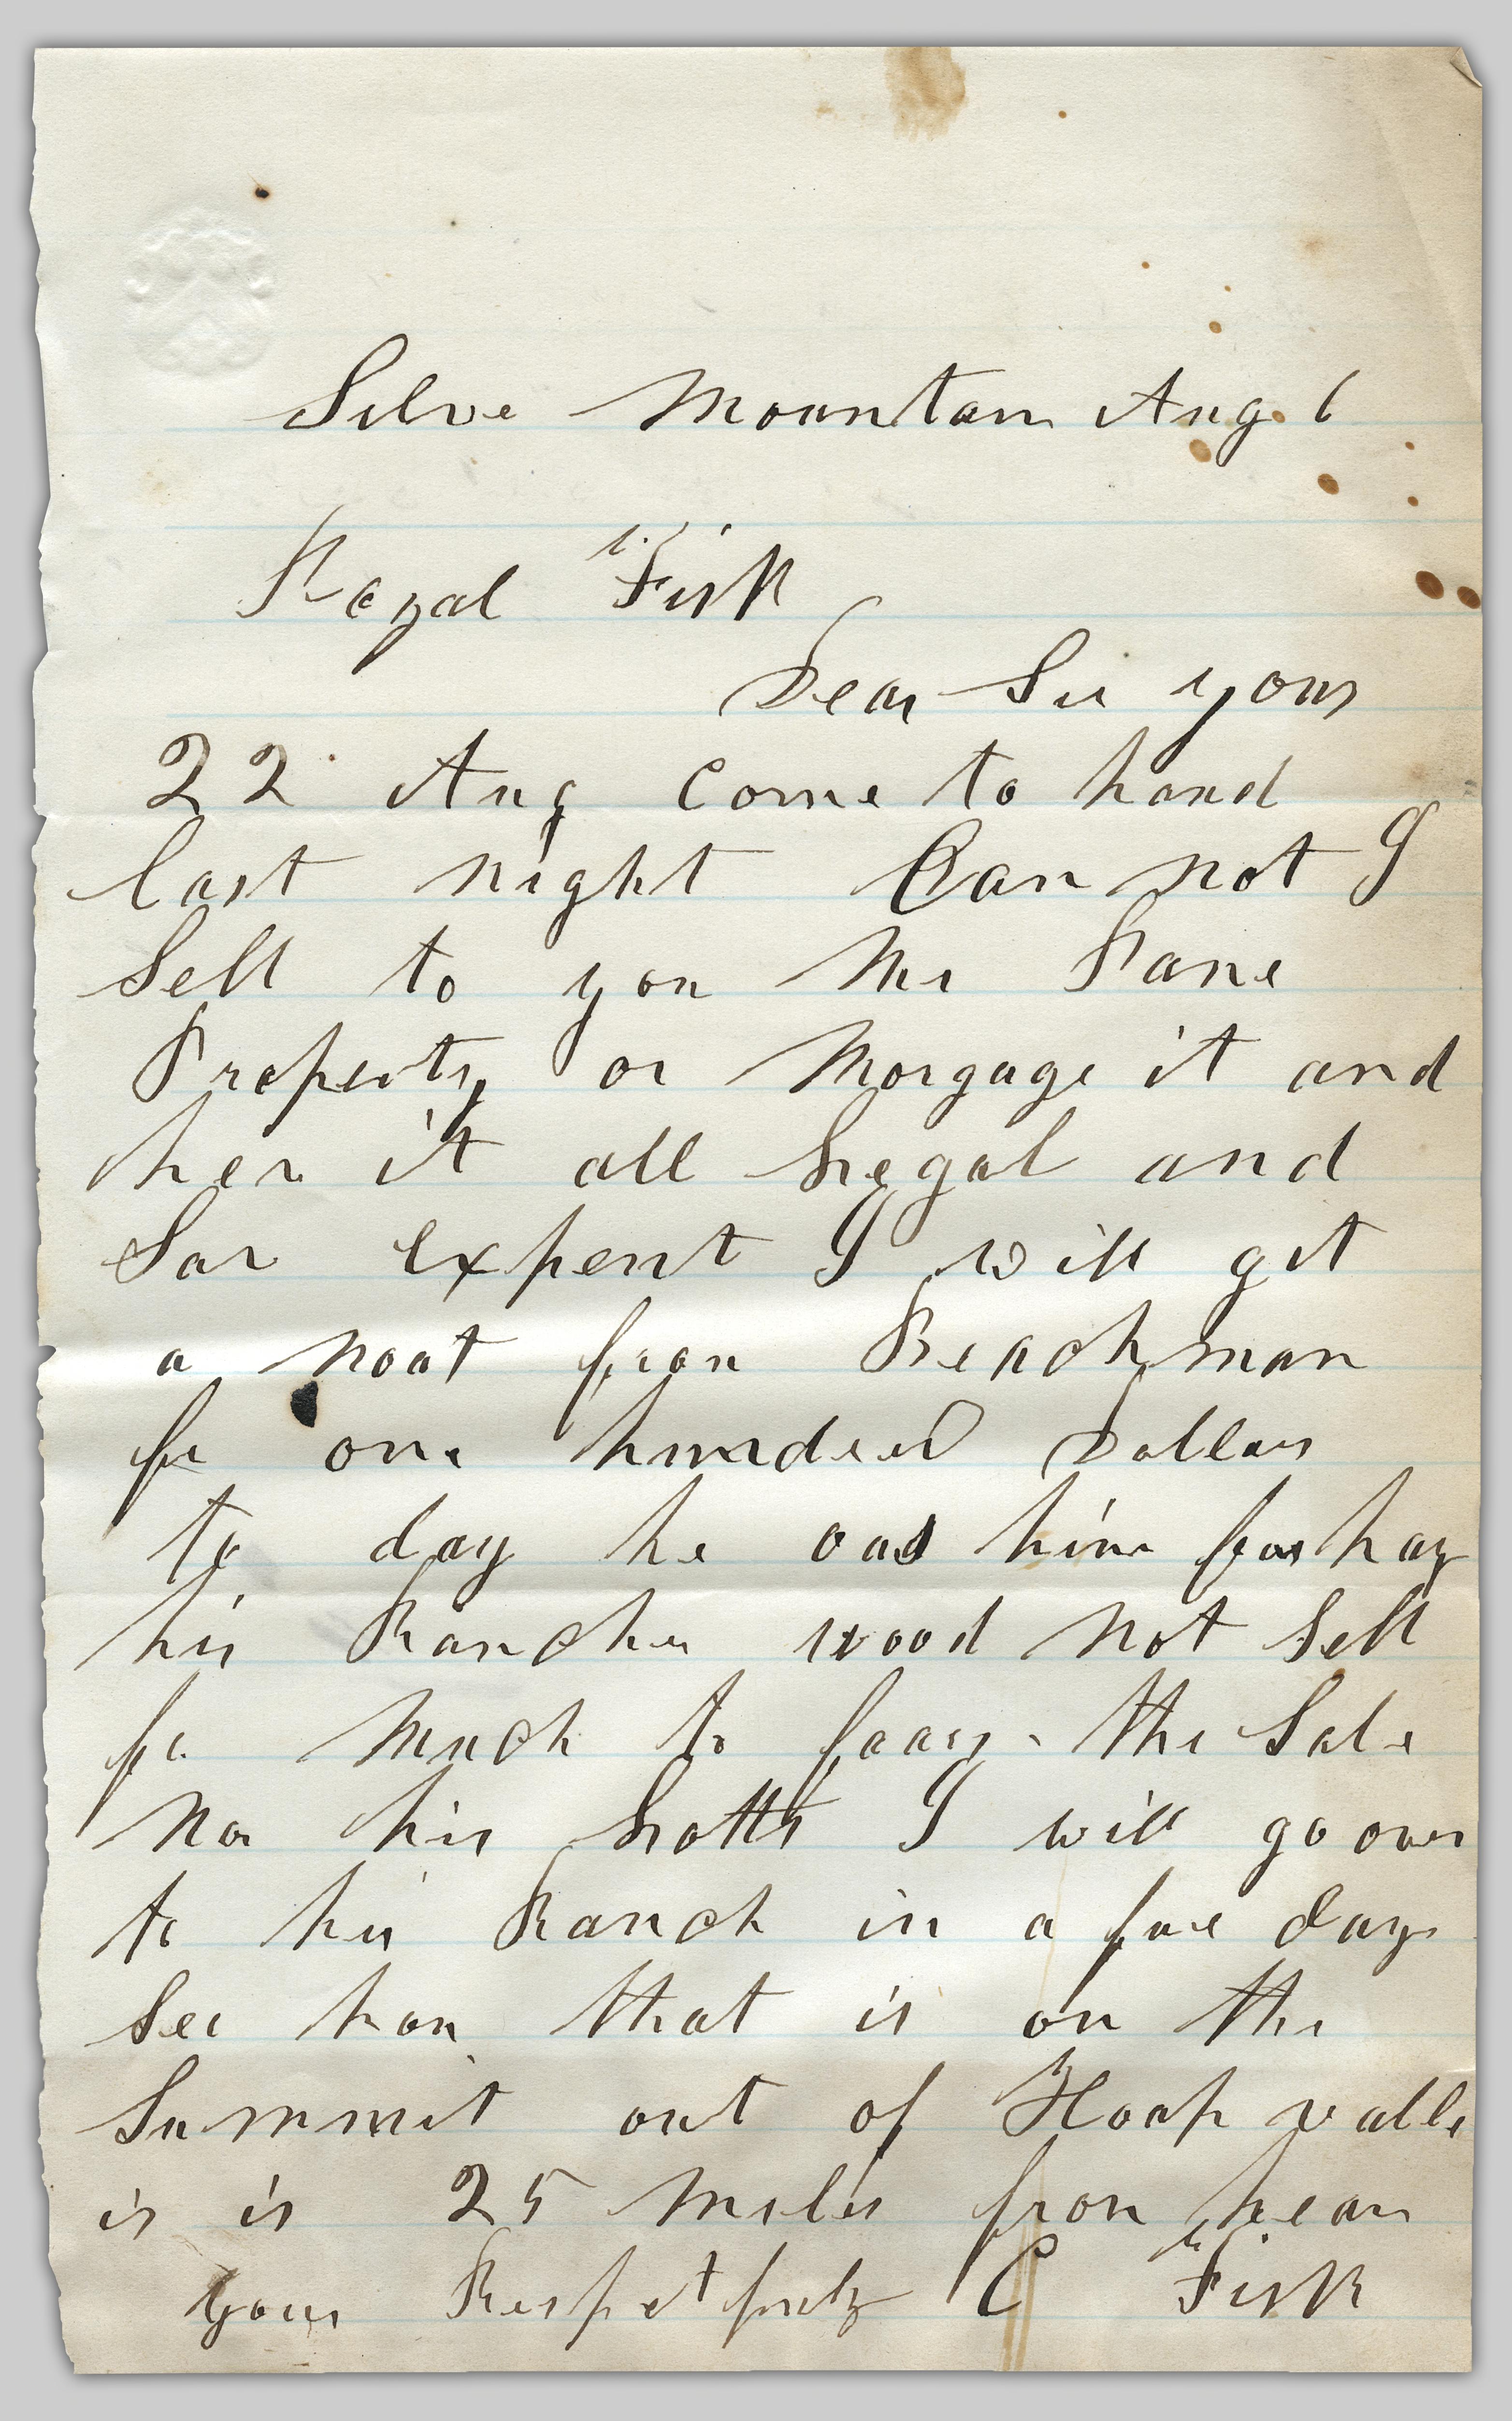 Silve Mountan Aug. 6
Royal Fisk
Dear Sir your
22 Aug Come to hand
last night Can not I
Sell to you the Pane
Property or Morgage it and
her it all Legal and
Sav Expent I will get
a noat from Beachman
for one hundred Dollars
to day he oas him for hay
his Ranches wood not Sell
for much to the Sale
no his Lotts I will go over
to his Ranch in a fue days
See hou that is on the
Summit out of Hoap valle
is is 25 Miles from hear
yours Respetfuly C Fisk